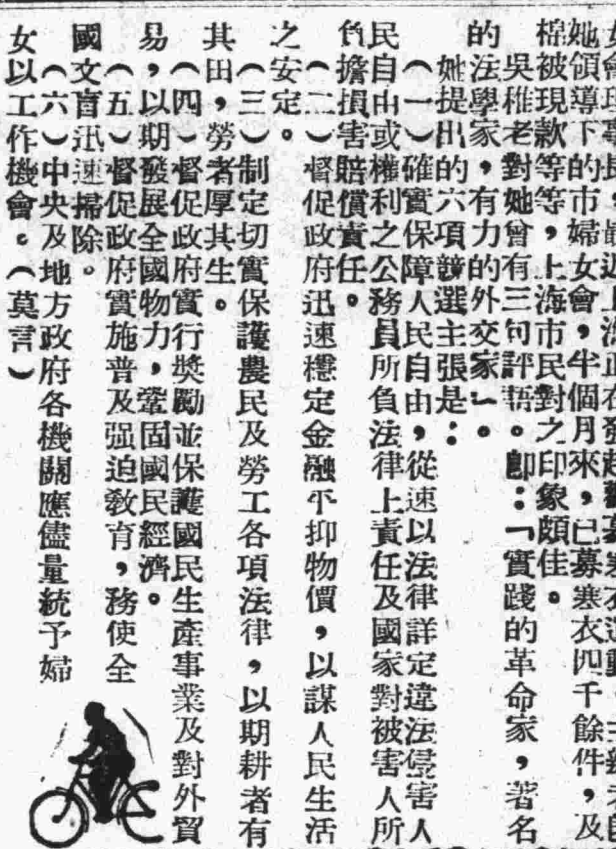 她領導下的市婦女會，半個月來，已募寒衣四千餘件，及
棉被現款等等，上海市民對之印象頗佳。
吳稚老對她曾有三句評語。卽：「實踐的革命家，著名
的法學家，有力的外交家」。
她提出的六項競選主張是：
（一）確實保障人民自由，從速以法律詳定違法侵害人
民自由或權利之公務員所負法律上責任及國家對被害人所
負擔損害賠償責任。
（二）督促政府迅速穩定金融平抑物價，以謀人民生活
之安定。
（三）制定切實保護農民及勞工各項法律，以期耕者有
其田，勞者厚其生。
（四）督促政府實行獎勵並保護國民生產事業及對外貿
易，以期發展全國物力，鞏固國民經濟。
（五）督促政府實施普及强迫敎育，務使全
國文盲迅速掃除。
（六）中央及地方政府各機關應儘量統予婦
女以工作機會。（莫言）